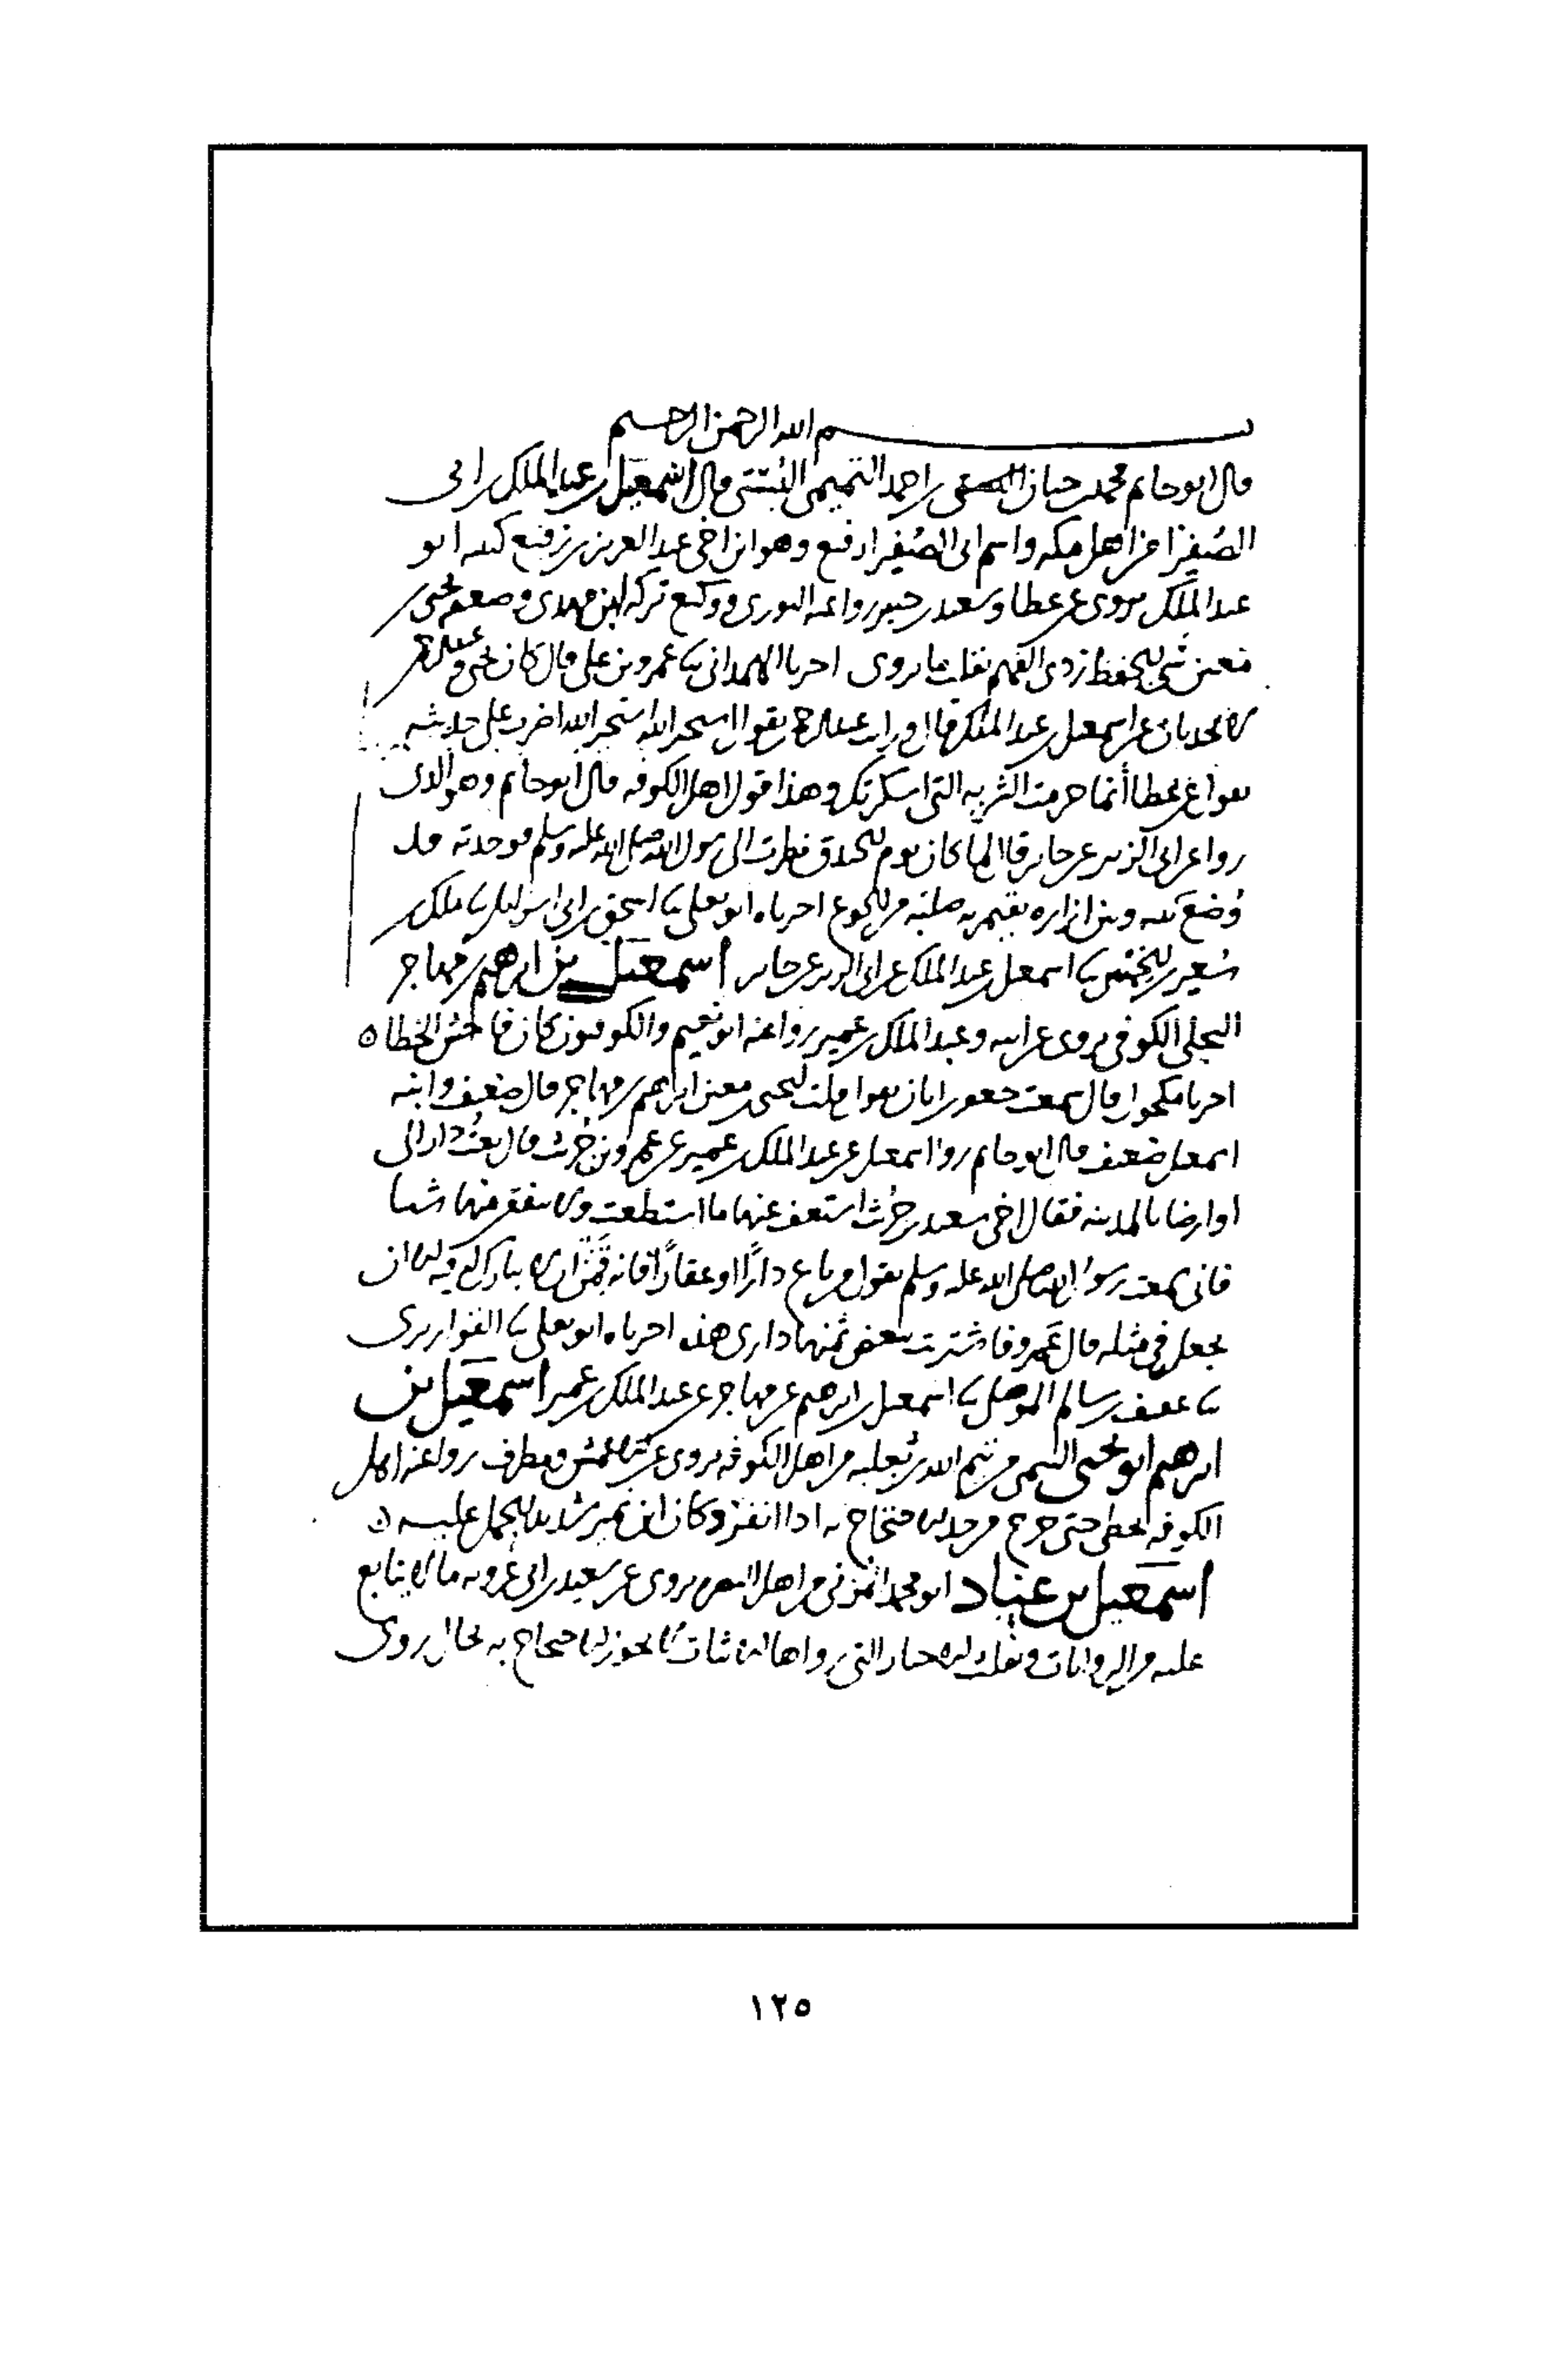 بسم الله الرحمن الرحيم
قال ابو حاتم محمد بن حبان بن احمد التميمي البستي قال اسمعيل بن عبد الملك بن ابي
الصفيرا من اهل مكه واسم ابي الصفيرا رفيع وهو ابن اخي عبد العزيز بن رفيع كنيته ابو
عبد الملك يروي عن عطا وسعيد بن جبير روا عنه الثوري ووكيع تركه ابن مهدي وضعفه يحيى بن
معين سيئ الحفظ ردي الفهم يقلب ما يروي اخبرنا الهمداني ثنا عمرو بن علي قال كان يحيى و عبد الرحمن
لا يحدثان عن اسمعيل بن عبد الملك قال ورايت عبد الرحمن يقول استخير الله استخير الله اضرب على حديثه
عن عطا أنما حرمت الشربه التي اسكرتك وهذا قول اهل الكوفه قال ابو حاتم وهو الذي
روا عن ابي الزبير عن جابر قال لما كان يوم الخندق نظرت الى رسول الله صلى الله عليه وسلم فوجدته قد
وُضع بينه وبين ازاره يقيم به صلبه من الجوع اخبرناه ابو يعلى ثنا اسحق بن ابي اسرائيل ثنا ملك بن
سُعير بن الخمس ثنا اسمعيل بن عبد الملك عن ابي الزبير عن جابر اسمعيل بن ابرهيم بن مهاجر
البجلي الكوفي يروي عن ابيه وعبد الملك بن عمير روا عنه ابو نعيم والكوفيون كان فاحش الخطا ٥
اخبرنا مكحول قال سمعت جعفر بن ابان يقول قلت ليحيى بن معين ابراهيم بن مهاجر قال ضعيف وابنه
اسمعيل ضعيف قال ابو حاتم روا اسمعيل عن عبد الملك بن عمير عن عمرو بن حُريث قال بعتُ دارا لي
او ارضا بالمدينه فقال لي اخي سعيد بن حُريث استعف عنها ما استطعت ولا تنفق منها شيا
فاني سمعت رسول الله صلى الله عليه وسلم يقول من باع دارًا او عقارًا فانه قَمَنٌ ان لا يبارك له فيه الا ان
يجعل في مثله قال عَمرو فاشتريت ببعض ثمنها داري هذه اخبرناه ابو يعلى ثنا القواريري
ثنا عفيف بن سالم الموصلي ثنا اسمعيل بن ابرهيم بن مهاجر عن عبد الملك بن عمير اسمعيل بن
ابرهيم ابو يحيى التيمي من تيم الله بن ثعلبه من اهل الكوفه يروي عن الاعمش ومطرف روا عنه اهل
الكوفه يخطي حتى خرج من حد الاحتجاج به اذا انفرد وكان ابن نمير شديد الحمل عليه ٥
اسمعيل بن عبّاد ابو محمد المزني من اهل البصره يروي عن سعيد بن ابي عروبه ما لا يتابع
عليه من الروايات ويقلب الاخبار التي رواها الاثبات لا يجوز الاحتجاج به بحال روى
١٢٥